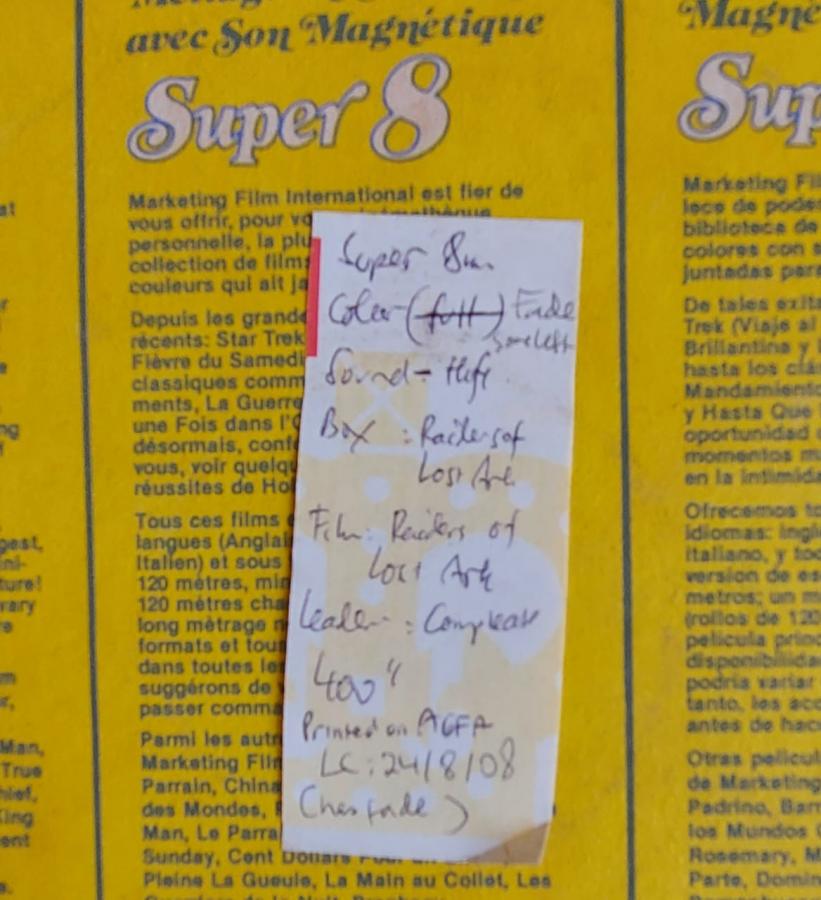 avec Son Magnétique
Super 8
Marketing Film International est fier de
vous offrir, pour
personnelle, la plu
collection de films
couleurs qui ait ja
Depuis les grande
récents: Star Trek
Fièvre du Samedi
classiques comm
ments, La Guerre
une Fois dans l'O
désormais, conf
vous, voir quelqu
réussites de Ho
Tous ces films
langues (Anglai
Italien) et sous
120 mètres, min
120 mètres cha
long métrage
formats et tous
dans toutes les
suggérons de
passer comma
Parmi les autr
Marketing Film
Parrain, China
des Mondes,
Man, Le Parra
Sunday, Cent Dollars Pour un
Pleine La Gueule, La Main au Collet, Les
Super 8m
Color (full) Fade
some left
Sound - Hifi
Box : Raiders of
Lost Ark
Film: Raiders of
Lost Ark
Leader : Compleat
400"
Printed on AGFA
LC: 24/8/08
(has fade)
Magné
Sup
Marketing Fil
lece de pode
biblioteca de
colores con s
juntadas para
De tales exit
Trek (Viaje al
Brillantina y
hasta los clás
Mandamiento
y Hasta Que
oportunidad
momentos m
en la intimida
Ofrecemos to
idiomas: Inglé
italiano, y to
version de es
metros; un m
(rollos de 120
pelicula princ
disponibilida
podría variar
tanto, les aco
antes de hac
Otras pelicul
de Marketing
Padrino, Bar
los Mundos
Rosemary, M
Parte, Domin